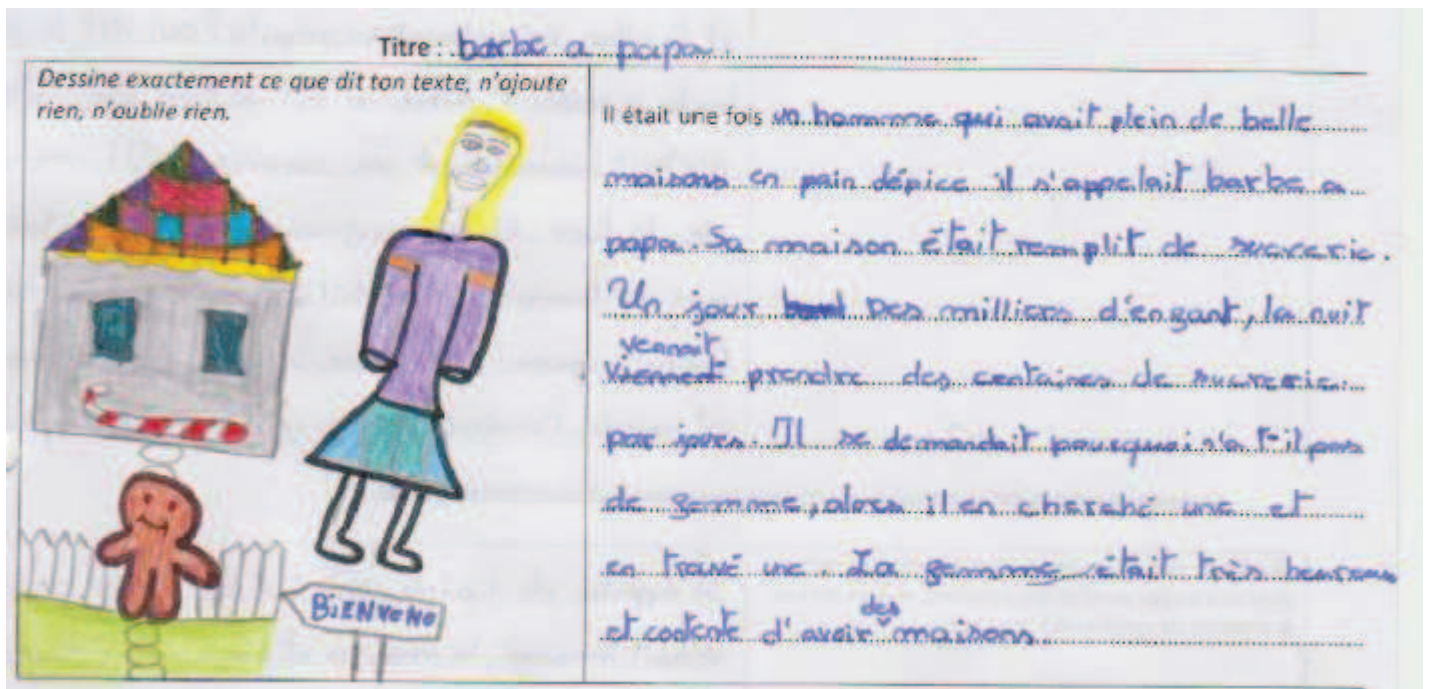 Titre : barbe a papa
Dessine exactement ce que dit ton texte, n'ajoute
rien, n'oublie rien.
BiENVENO
Il était une fois un homme qui avait plein de belle
maisons en pain dépice il s'appelait barbe a
papa. Sa maison était remplit de sucrerie.
Un jour Des milliers d'enfant, la nuit
venait
viennent prendre des centaines de sucrerie
par jours. Il se demandait pourquoi n'a t-il pas
de femme, alors il en cherché une et
en trouvé une. La femme était très heureuse
des
et contente d'avoir maisons